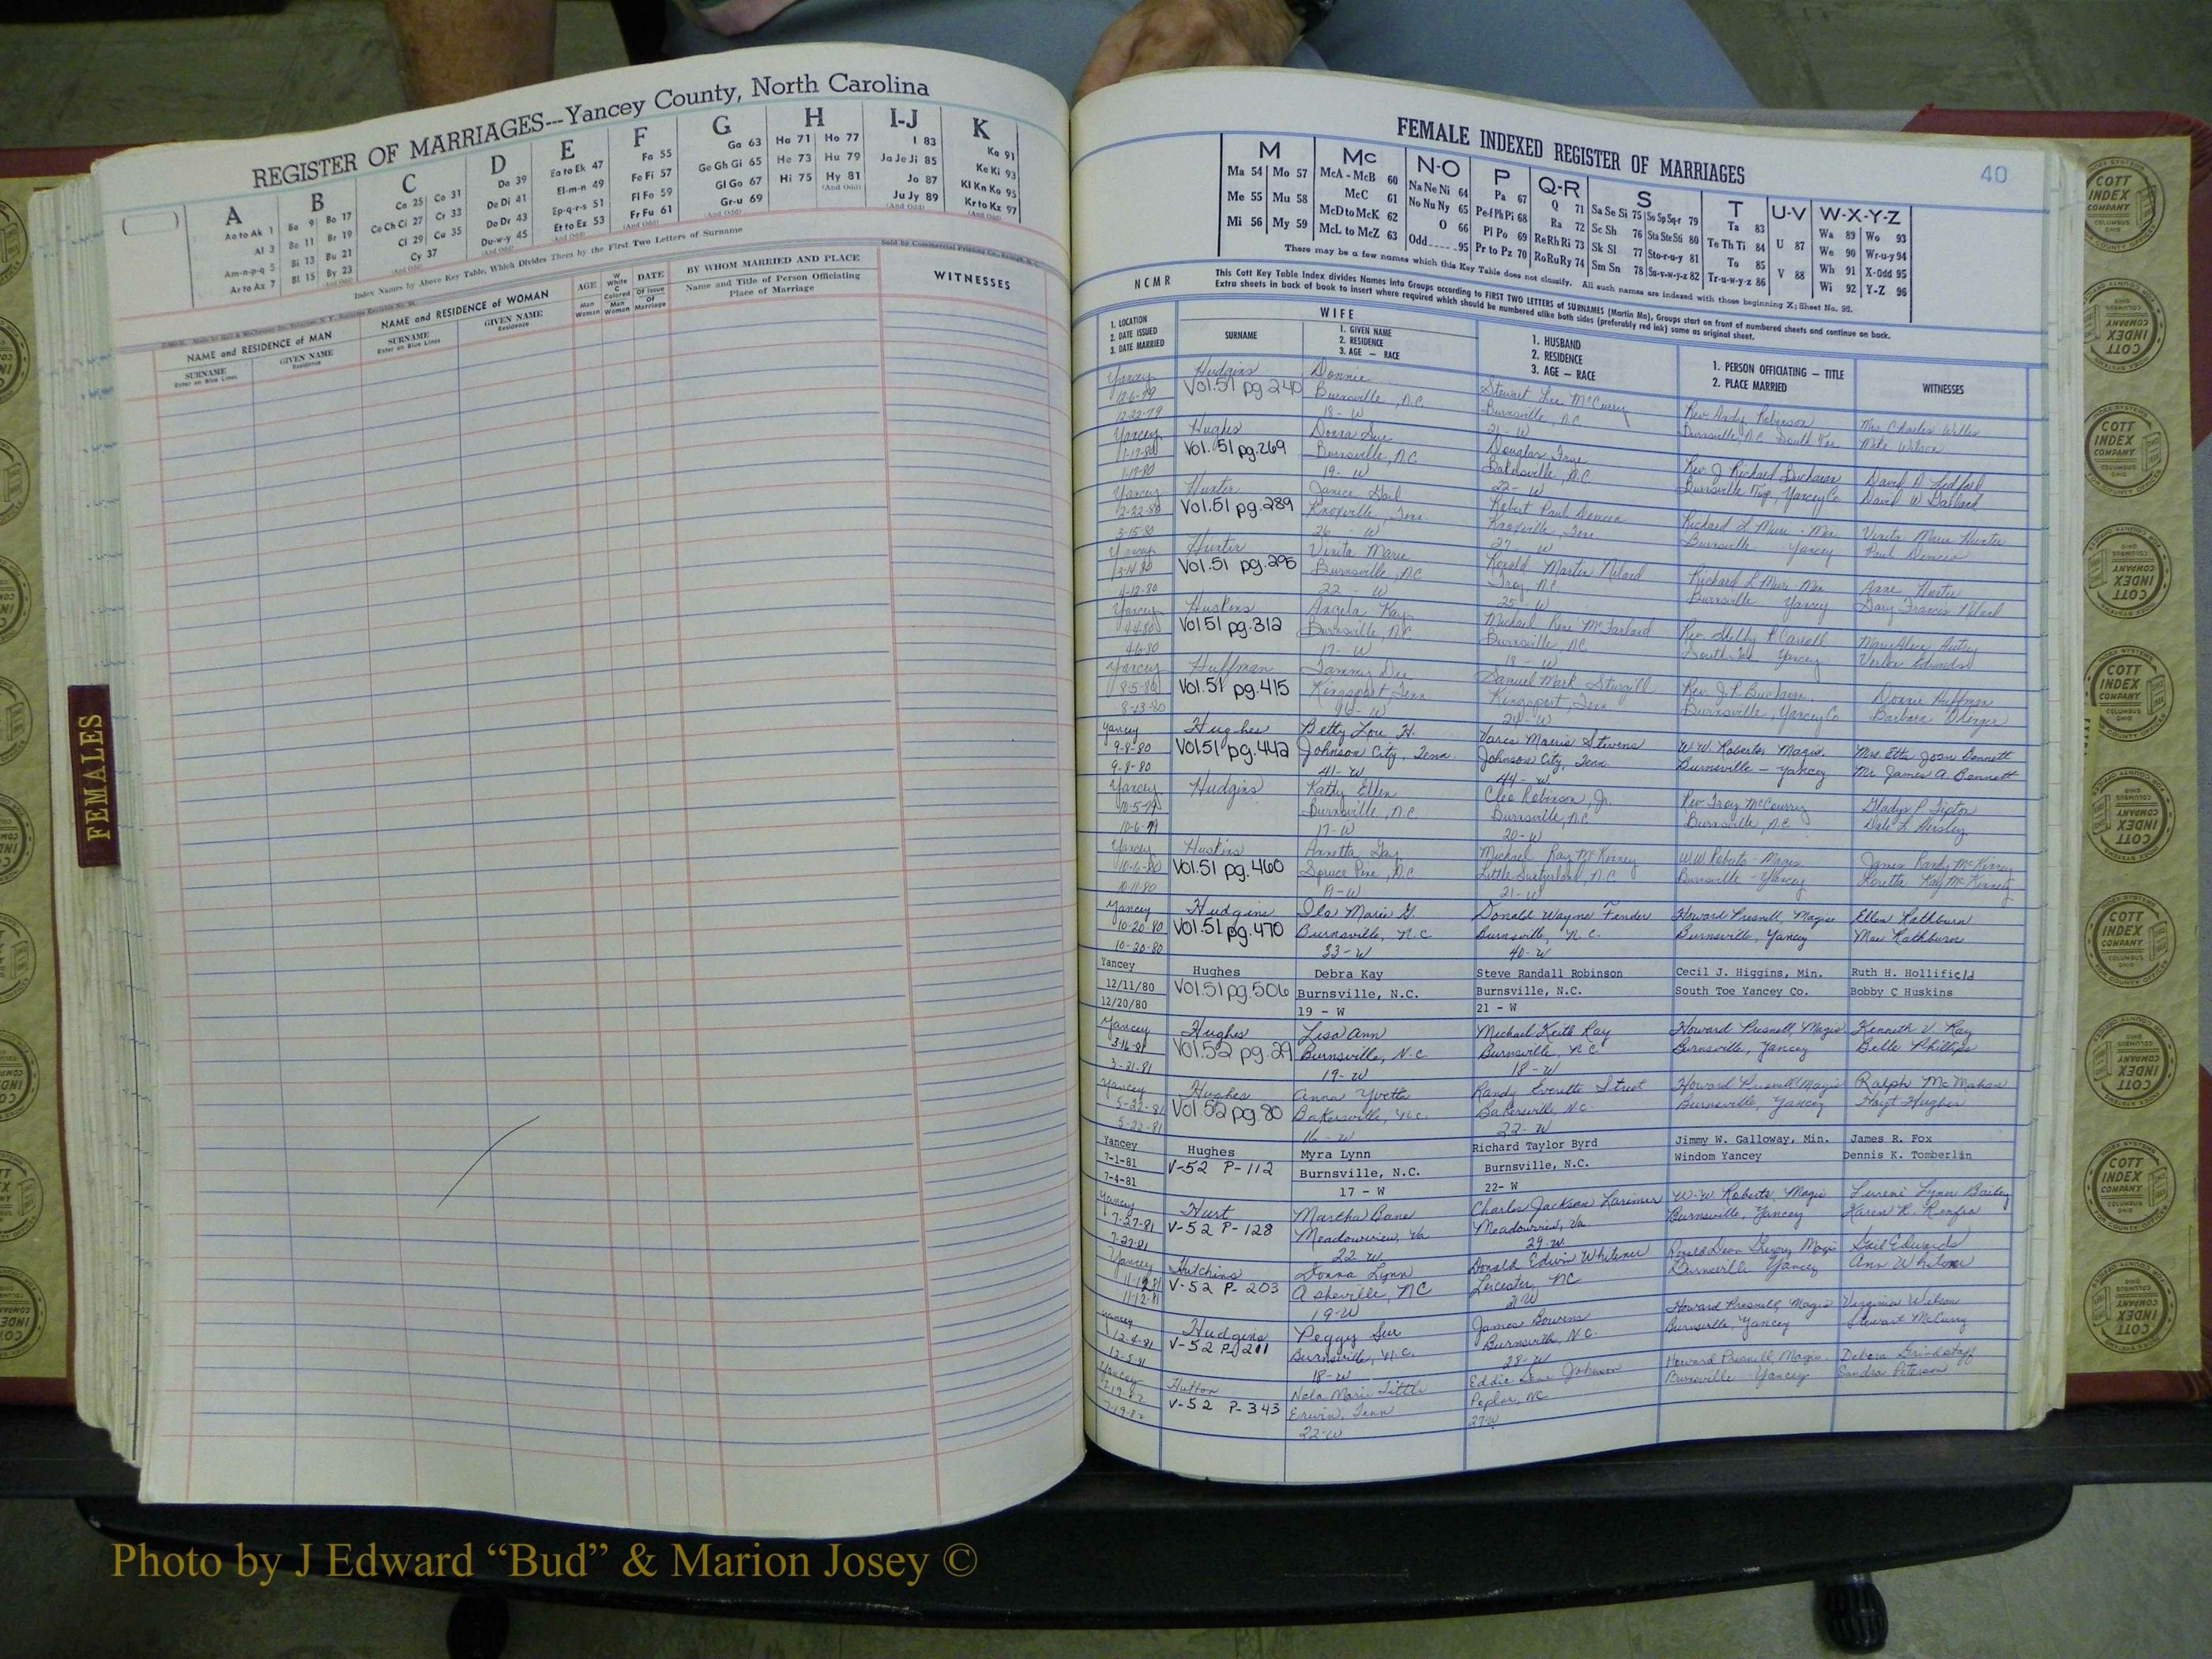 REGISTER OF MARRIAGES---Yancey County, North Carolina
A
Aa to Ak 1
Al 3
Am-n-p-q 5
Ar to Az 7
B
Ba 9 Bo 17
Be 11 Br 19
Bi 13 Bu 21
Bl 15 By 23
(And Odd)
C
Ca 25 Co 31
Ce Ch Ci 27 Cr 33
Cl 29 Cu 35
Cy 37
(And Odd)
D
Da 39
De Di 41
Do Dr 43
Du-w-y 45
(And Odd)
E
Ea to Ek 47
El-m-n 49
Ep-q-r-s 51
Et to Ez 53
(And Odd)
F
Fa 55
Fe Fi 57
Fl Fo 59
Fr Fu 61
(And Odd)
G
Ga 63
Ge Gh Gi 65
Gl Go 67
Gr-u 69
(And Odd)
H
Ha 71 Ho 77
He 73 Hu 79
Hi 75 Hy 81
(And Odd)
I-J
I 83
Ja Je Ji 85
Jo 87
Ju Jy 89
(And Odd)
K
Ka 91
Ke Ki 93
Kl Kn Ko 95
Kr to Kz 97
(And Odd)
Index Names by Above Key Table, Which Divides Them by the First Two Letters of Surname
NAME and RESIDENCE of MAN
SURNAME
Enter on Blue Lines
GIVEN NAME
Residence
NAME and RESIDENCE of WOMAN
SURNAME
Enter on Blue Lines
GIVEN NAME
Residence
AGE
Man
Woman
W
White
C
Colored
Man
Woman
DATE
Of Issue
Of
Marriage
BY WHOM MARRIED AND PLACE
Name and Title of Person Officiating
Place of Marriage
WITNESSES
FEMALES
FEMALE INDEXED REGISTER OF MARRIAGES
40
M
Ma 54 Mo 57
Me 55 Mu 58
Mi 56 My 59
Mc
McA - McB 60
McC 61
McD to McK 62
McL to McZ 63
N-O
Na Ne Ni 64
No Nu Ny 65
O 66
Odd 95
P
Pa 67
Pe-f Ph Pi 68
Pl Po 69
Pr to Pz 70
Q-R
Q 71
Ra 72
Re Rh Ri 73
Ro Ru Ry 74
S
Sa Se Si 75 So Sp Sq-r 79
Sc Sh 76 Sta Ste Sti 80
Sk Sl 77 Sto-r-u-y 81
Sm Sn 78 Su-v-w-y-z 82
T
Ta 83
Te Th Ti 84
To 85
Tr-u-w-y-z 86
U-V
U 87
V 88
W-X-Y-Z
Wa 89 Wo 93
We 90 Wr-u-y 94
Wh 91 X-Odd 95
Wi 92 Y-Z 96
There may be a few names which this Key Table does not classify. All such names are indexed with those beginning X; Sheet No. 95.
This Cott Key Table Index divides Names into Groups according to FIRST TWO LETTERS of SURNAMES (Martin Ma), Groups start on front of numbered sheets and continue on back.
Extra sheets in back of book to insert where required which should be numbered alike both sides (preferably red ink) same as original sheet.
NCMR
1. LOCATION
2. DATE ISSUED
3. DATE MARRIED
WIFE
SURNAME
1. GIVEN NAME
2. RESIDENCE
3. AGE — RACE
1. HUSBAND
2. RESIDENCE
3. AGE — RACE
1. PERSON OFFICIATING — TITLE
2. PLACE MARRIED
WITNESSES
Yancey Hudgins Donnie Stewart Lee McCurry Rev Andy Robinson Mrs Charles Willis
12-6-79 Vol.51 pg.240 Burnsville, N.C. Burnsville, N.C. Burnsville, N.C. South Toe Mike Wilson
12-22-79 18- W 21- W
Yancey Hughes Donna Sue Douglas Rev J. Richard Buchanan David A Ledford
1-17-80 Vol.51 pg.269 Burnsville, N.C. Bakersville, N.C. Burnsville Twp, Yancey Co David W
1-19-80 19- W 22- W
Yancey Hunter Janice Gail Robert Paul Richard L Muri - Min Vinita Marie Hunter
2-22-80 Vol.51 pg.289 Knoxville, Tenn Knoxville, Tenn Burnsville Yancey Paul
3-15-80 26 W 27 W
Yancey Hunter Vinita Marie Ronald Martin Richard L Muri - Min Anne Hunter
Vol.51 pg.295 Burnsville, NC Troy, N.C. Burnsville Yancey Gary Francis
4-12-80 22 - W 25 - W
Yancey Huskins Angela Kay Michael Rene McFarland Rev. Shelby R Mary Alice Autry
4-4-80 Vol 51 pg.312 Burnsville, N.C. Burnsville, N.C. South Toe Yancey Verlon Edwards
4-6-80 17- W 18 - W
Yancey Huffman Tammy Dee Samuel Mark Sturgill Rev. J.R. Buchanan Donnie Huffman
8-5-80 Vol.51 pg.415 Kingsport, Tenn Kingsport, Tenn Burnsville, Yancey Co Barbara
8-13-80 W 24- W
Yancey Hughes Betty Lou H. Morris Stevens W.W. Roberts Magis. Mrs Etta Joan Bennett
9-8-80 Vol.51 pg.442 Johnson City, Tenn Johnson City, Tenn Burnsville - Yancey Mr James A Bennett
9-8-80 41- W 44- W
Yancey Hudgins Kathy Ellen Cleo Robinson, Jr. Rev Troy McCourry Gladys P Tipton
10-5-79 Burnsville, N.C. Burnsville, N.C. Burnsville, N.C. Dale L. Hensley
10-6-79 17- W 20- W
Yancey Huskins Annetta Gay Michael Ray McKinney W.W. Roberts - Magis James Randy McKinney
10-6-80 Vol.51 pg.460 Spruce Pine, N.C. Little Switzerland, N.C. Burnsville - Yancey Loretta Kay McKinney
10-11-80 19- W 21- W
Yancey Hudgins Ila Marie G. Donald Wayne Fender Howard Presnell, Magis Ellen Rathburn
10-20-80 Vol.51 pg.470 Burnsville, N.C. Burnsville, N.C. Burnsville, Yancey Mae Rathburn
10-20-80 33- W 40- W
Yancey Hughes Debra Kay Steve Randall Robinson Cecil J. Higgins, Min. Ruth H. Hollifield
12/11/80 Vol.51 pg.506 Burnsville, N.C. Burnsville, N.C. South Toe Yancey Co. Bobby C Huskins
12/20/80 19 - W 21 - W
Yancey Hughes Lisa Ann Michael Keith Ray Howard Presnell Magis Kenneth V. Ray
3-16-81 Vol.52 pg.29 Burnsville, N.C. Burnsville, N.C. Burnsville, Yancey Belle Phillips
3-21-81 19- W 18- W
Yancey Hughes Anna Yvette Randy Everette Street Howard Presnell Magis Ralph McMahan
5-22-81 Vol.52 pg.80 Bakersville, N.C. Bakersville, N.C. Burnsville, Yancey Hoyt Hughes
5-22-81 16 - W 22- W
Yancey Hughes Myra Lynn Richard Taylor Byrd Jimmy W. Galloway, Min. James R. Fox
7-1-81 V-52 P-112 Burnsville, N.C. Burnsville, N.C. Windom Yancey Dennis K. Tomberlin
7-4-81 17 - W 22- W
Yancey Hurt Martha Bane Charles Jackson Larimer W.W. Roberts, Magis Lynn Bailey
7-27-81 V-52 P-128 Meadowview, Va Meadowview, Va Burnsville, Yancey Karen R. Renfro
7-27-81 22- W 29- W
Yancey Hutchins Donna Lynn Donald Edwin Whitener Ronald Dean Magis Gail Edwards
11-12-81 V-52 P-203 Asheville, NC Leicester, NC Burnsville Yancey Ann Whitener
11-12-81 19-W 21 W
Yancey Hudgins Peggy Sue James Bowens Howard Presnell, Magis Virginia Wilson
12-4-81 V-52 P-211 Burnsville, N.C. Burnsville, N.C. Burnsville, Yancey Stewart McCurry
12-5-81 18-W 28-W
Yancey Hutton Nola Marie Tittle Eddie Johnson Howard Presnell, Magis. Debora Grindstaff
7-19-82 V-52 P-343 Erwin, Tenn Poplar, NC Burnsville Yancey Sandra Peterson
7-19-82 22-W 27-W
COTT
INDEX
COMPANY
COLUMBUS
OHIO
Photo by J Edward “Bud” & Marion Josey ©